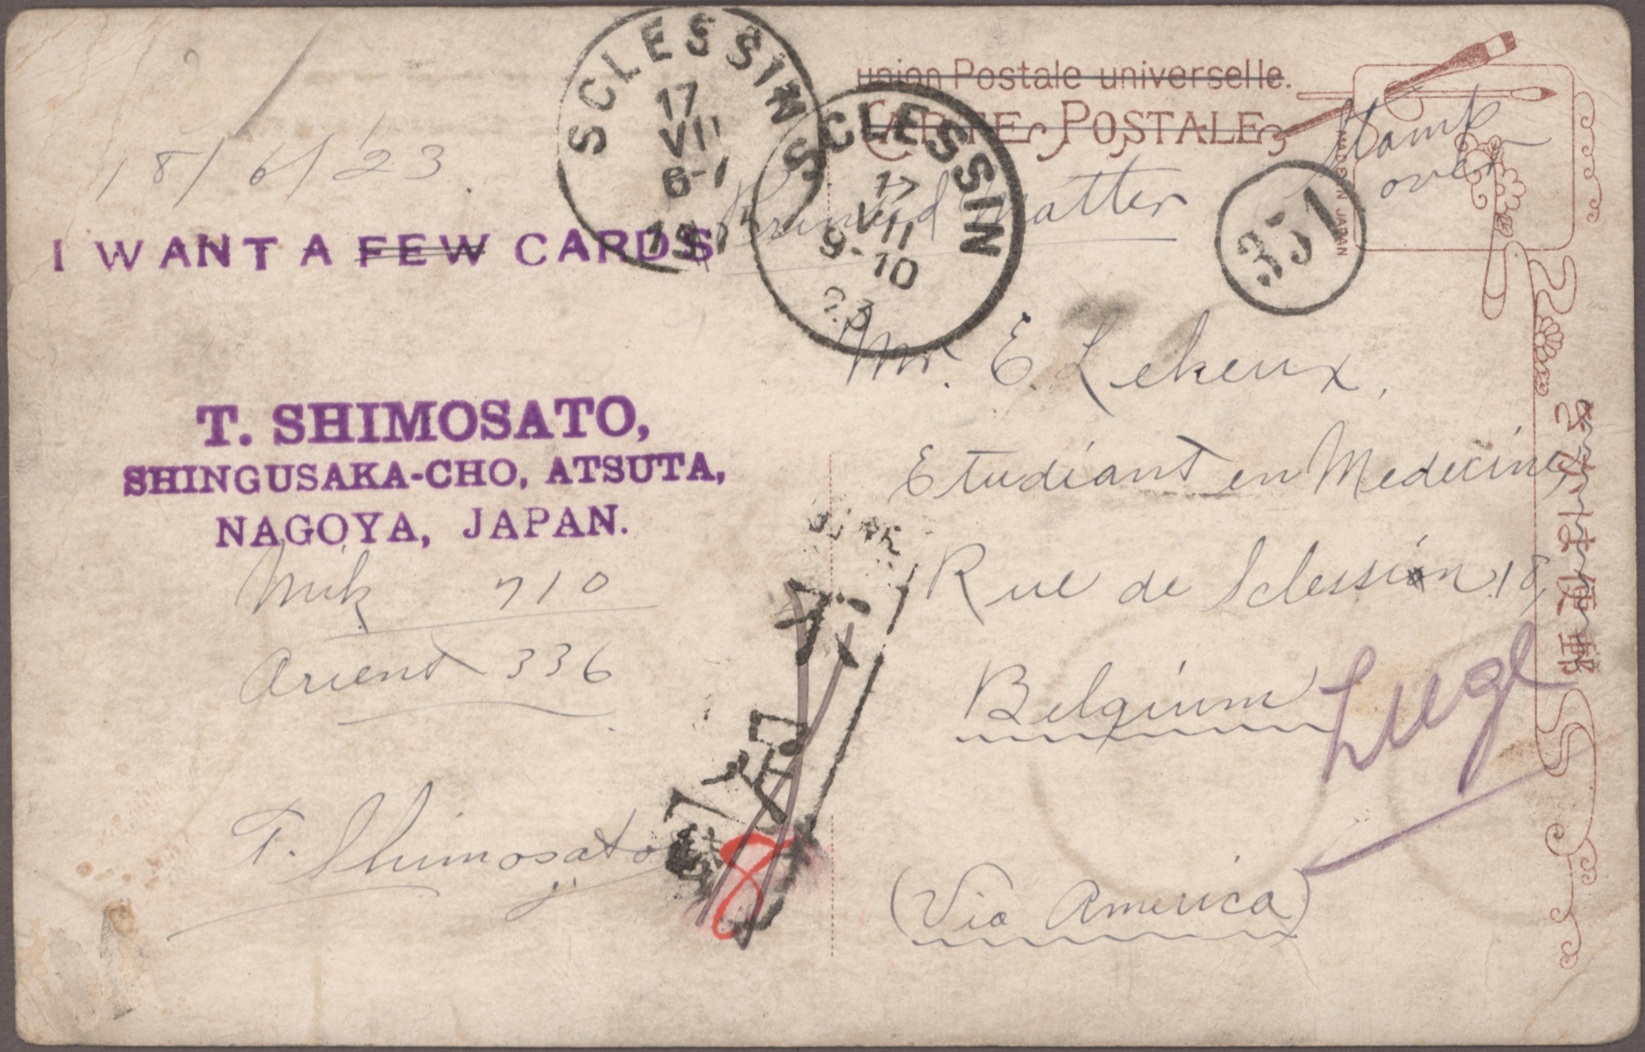 SCLESSIN
17
VII
6-7
SCLESSIN
17
VII
9-10
23
union Postale universelle.
CARTE POSTALE
MADE IN JAPAN
18/6/23
Printed Matter
Stamp
over
351
I WANT A FEW CARDS
T. SHIMOSATO,
SHINGUSAKA-CHO, ATSUTA,
NAGOYA, JAPAN.
Mik 710
Orient 336
T. Shimosato
Mr. E. Lekeux,
Etudiant en Medecine,
Rue de Sclessin 18,
Belgium
Liege
(Via America)
きがは便郵
不
8